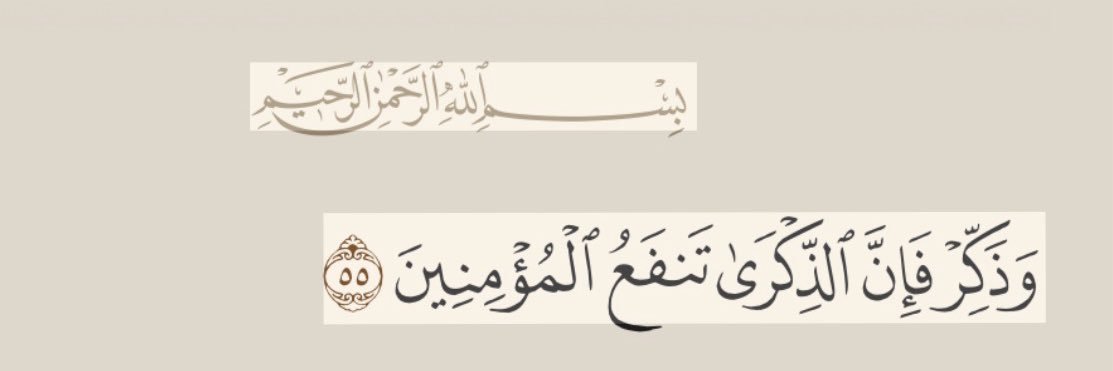 بِسْمِ ٱللَّهِ ٱلرَّحْمَٰنِ ٱلرَّحِيمِ
وَذَكِّرْ فَإِنَّ ٱلذِّكْرَىٰ تَنفَعُ ٱلْمُؤْمِنِينَ ٥٥